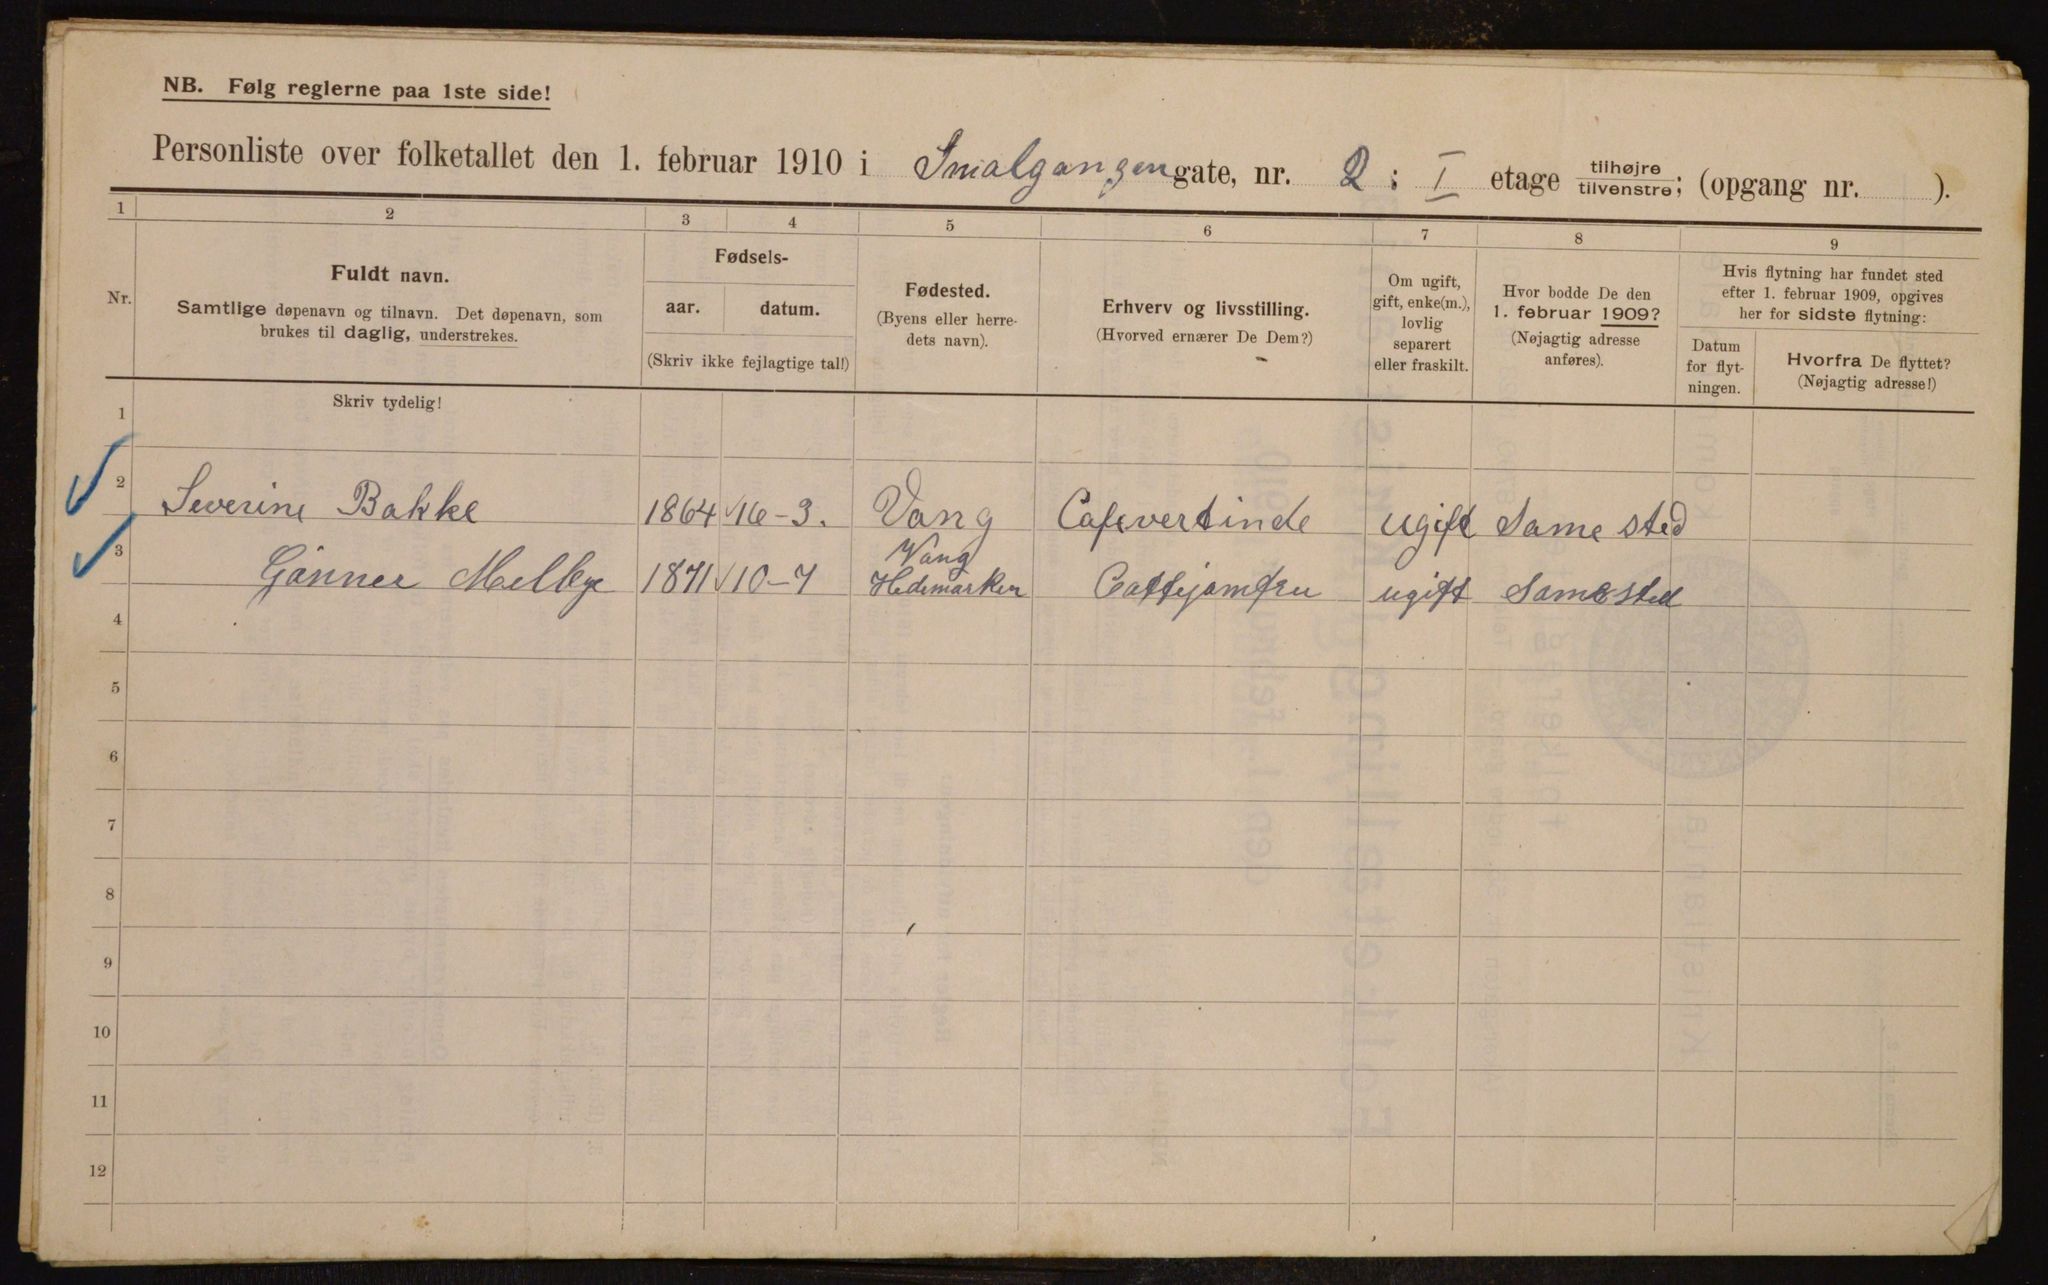 NB. Følg reglerne paa 1ste side!
Personliste over folketallet den 1. februar 1910 i Smalgangengate, nr. 2 : I etage tilhøjre/tilvenstre; (opgang nr. ).
1 2 3 4 5 6 7 8 9
Nr.
Fuldt navn.
Samtlige døpenavn og tilnavn. Det døpenavn, som
brukes til daglig, understrekes.
Skriv tydelig!
Fødsels-
aar. datum.
(Skriv ikke fejlagtige tal!)
Fødested.
(Byens eller herre-
dets navn).
Erhverv og livsstilling.
(Hvorved ernærer De Dem?)
Om ugift,
gift, enke(m.),
lovlig
separert
eller fraskilt.
Hvor bodde De den
1. februar 1909?
(Nøjagtig adresse
anføres).
Hvis flytning har fundet sted
efter 1. februar 1909, opgives
her for sidste flytning:
Datum
for flyt-
ningen.
Hvorfra De flyttet?
(Nøjagtig adresse!)
1
2 Severine Bakke 1864 16-3. Vang Cafevertinde ugift Samested
3 Gønner Melbye 1871 10-7 Vang Hedemarken Caffejomfru ugift Samested
4
5
6
7
8
9
10
11
12